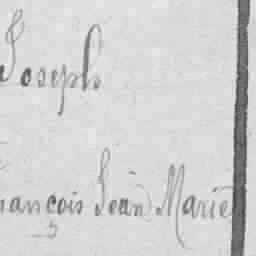 Joseph
rançois Jean Marie